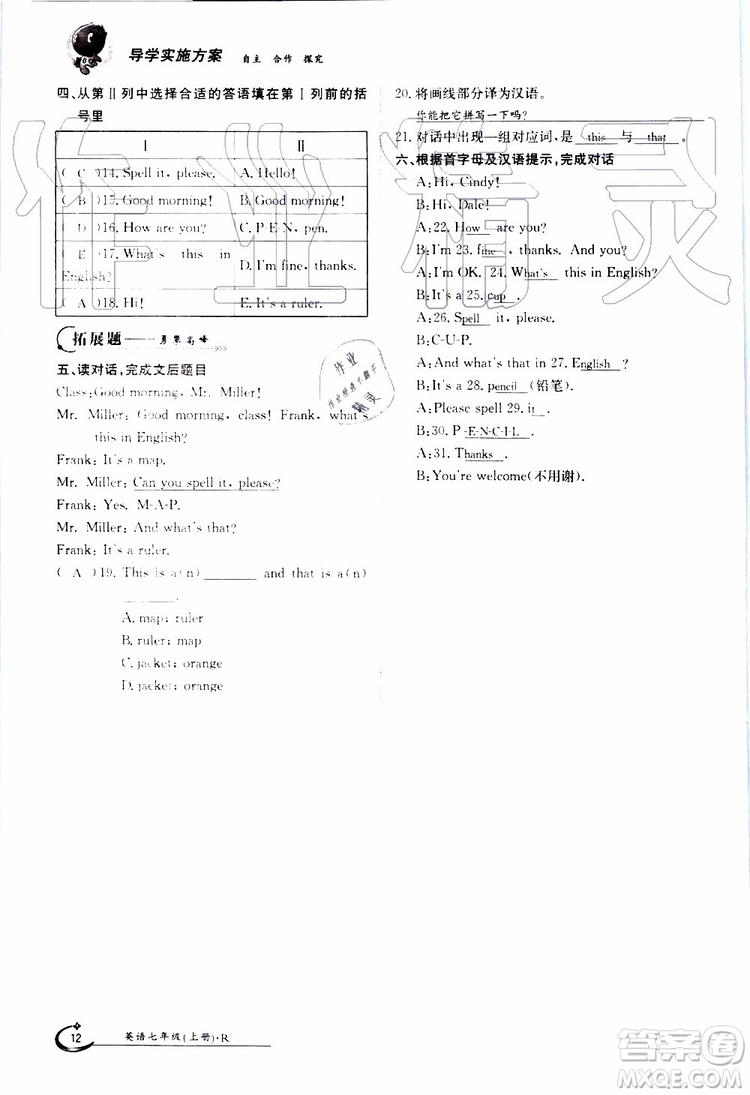 导学实施方案 自主 合作 探究
四、从第Ⅱ列中选择合适的答语填在第Ⅰ列前的括
号里
Ⅰ Ⅱ
( C )14. Spell it, please. A. Hello!
( B )15. Good morning! B. Good morning!
( D )16. How are you? C. P-E-N, pen.
( E )17. What's this in
English? D. I'm fine, thanks.
( A )18. Hi! E. It's a ruler.
拓展题——勇攀高峰
五、读对话,完成文后题目
Class: Good morning, Mr. Miller!
Mr. Miller: Good morning, class! Frank, what's
this in English?
Frank: It's a map.
Mr. Miller: Can you spell it, please?
Frank: Yes. M-A-P.
Mr. Miller: And what's that?
Frank: It's a ruler.
( A )19. This is a(n) ________ and that is a(n)
________.
A. map; ruler
B. ruler; map
C. jacket; orange
D. jacket; orange
20. 将画线部分译为汉语。
你能把它拼写一下吗?
21. 对话中出现一组对应词,是 this 与 that 。
六、根据首字母及汉语提示,完成对话
A: Hi, Cindy!
B: Hi, Dale!
A: 22. How are you?
B: I'm 23. fine , thanks. And you?
A: I'm OK. 24. What's this in English?
B: It's a 25. cup .
A: 26. Spell it, please.
B: C-U-P.
A: What's that in 27. English ?
B: It's a 28. pencil (铅笔).
A: Please spell 29. it .
B: 30. P -E-N-C-I-L .
A: 31. Thanks .
B: You're welcome(不用谢).
12 英语七年级(上册)·R
作业精灵
作业
精灵
答案圈
MXQE.COM